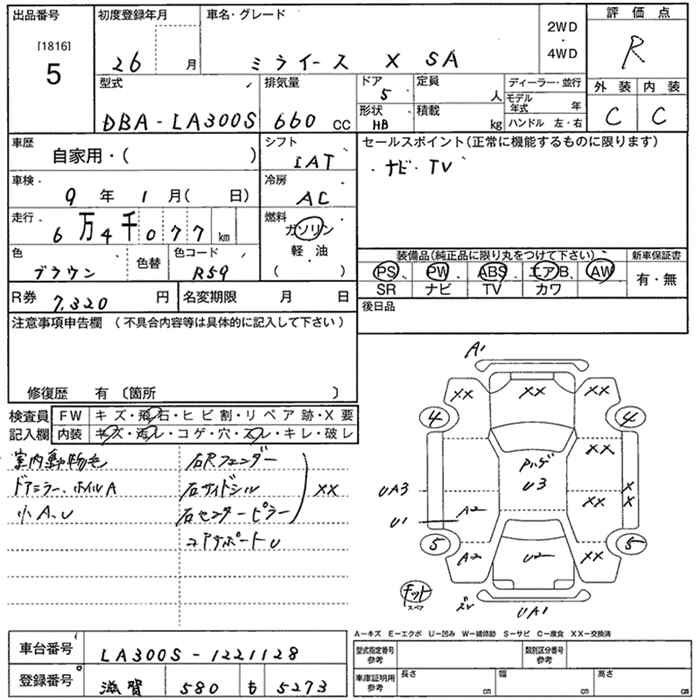 出品番号
[1816]
5
初度登録年月
26 月
車名・グレード
ミライース X SA
2WD
・
4WD
評価点
R
型式
DBA-LA300S
排気量
660 CC
ドア
5
形状
HB
定員
人
積載
kg
ディーラー・並行
モデル年式 年
ハンドル 左・右
外装 内装
C C
車歴
自家用・( )
シフト
IAT
セールスポイント(正常に機能するものに限ります)
・ナビ・TV
車検
9 年 1 月( 日)
冷房
AC
走行
6万4千077 km
燃料
ガソリン
軽・油
( )
色
ブラウン
色替
色コード
R59
装備品(純正品に限り丸をつけて下さい)
PS PW ABS エアB. AW
SR ナビ TV カワ
新車保証書
有・無
R券 7,320 円
名変期限 月 日
後日品
注意事項申告欄 (不具合内容等は具体的に記入して下さい)
修復歴 有 〔箇所 〕
検査員記入欄
FW キズ・飛石・ヒビ割・リペア跡・X要
内装 キズ・汚レ・コゲ・穴・スレ・キレ・破レ
室内動物毛
ドアミラー、ホイルA
小A、U
右Rフェンダー
右サイドシル
右センターピラー
XX
コアサポートU
A1
XX XX XX
4 4
XX
ハゲ
U3
UA3
U1
A2
XX
X
X
5 5
A2 U2 XX
キット
スペア
UA1
A-キズ E-エクボ U-凹み W-補修跡 S-サビ C-腐食 XX-交換済
車台番号 LA300S-1221128
登録番号 滋賀 580 も 5273
型式指定番号
参考
類別区分番号
参考
車庫証明用
参考
長さ cm
幅 cm
高さ cm